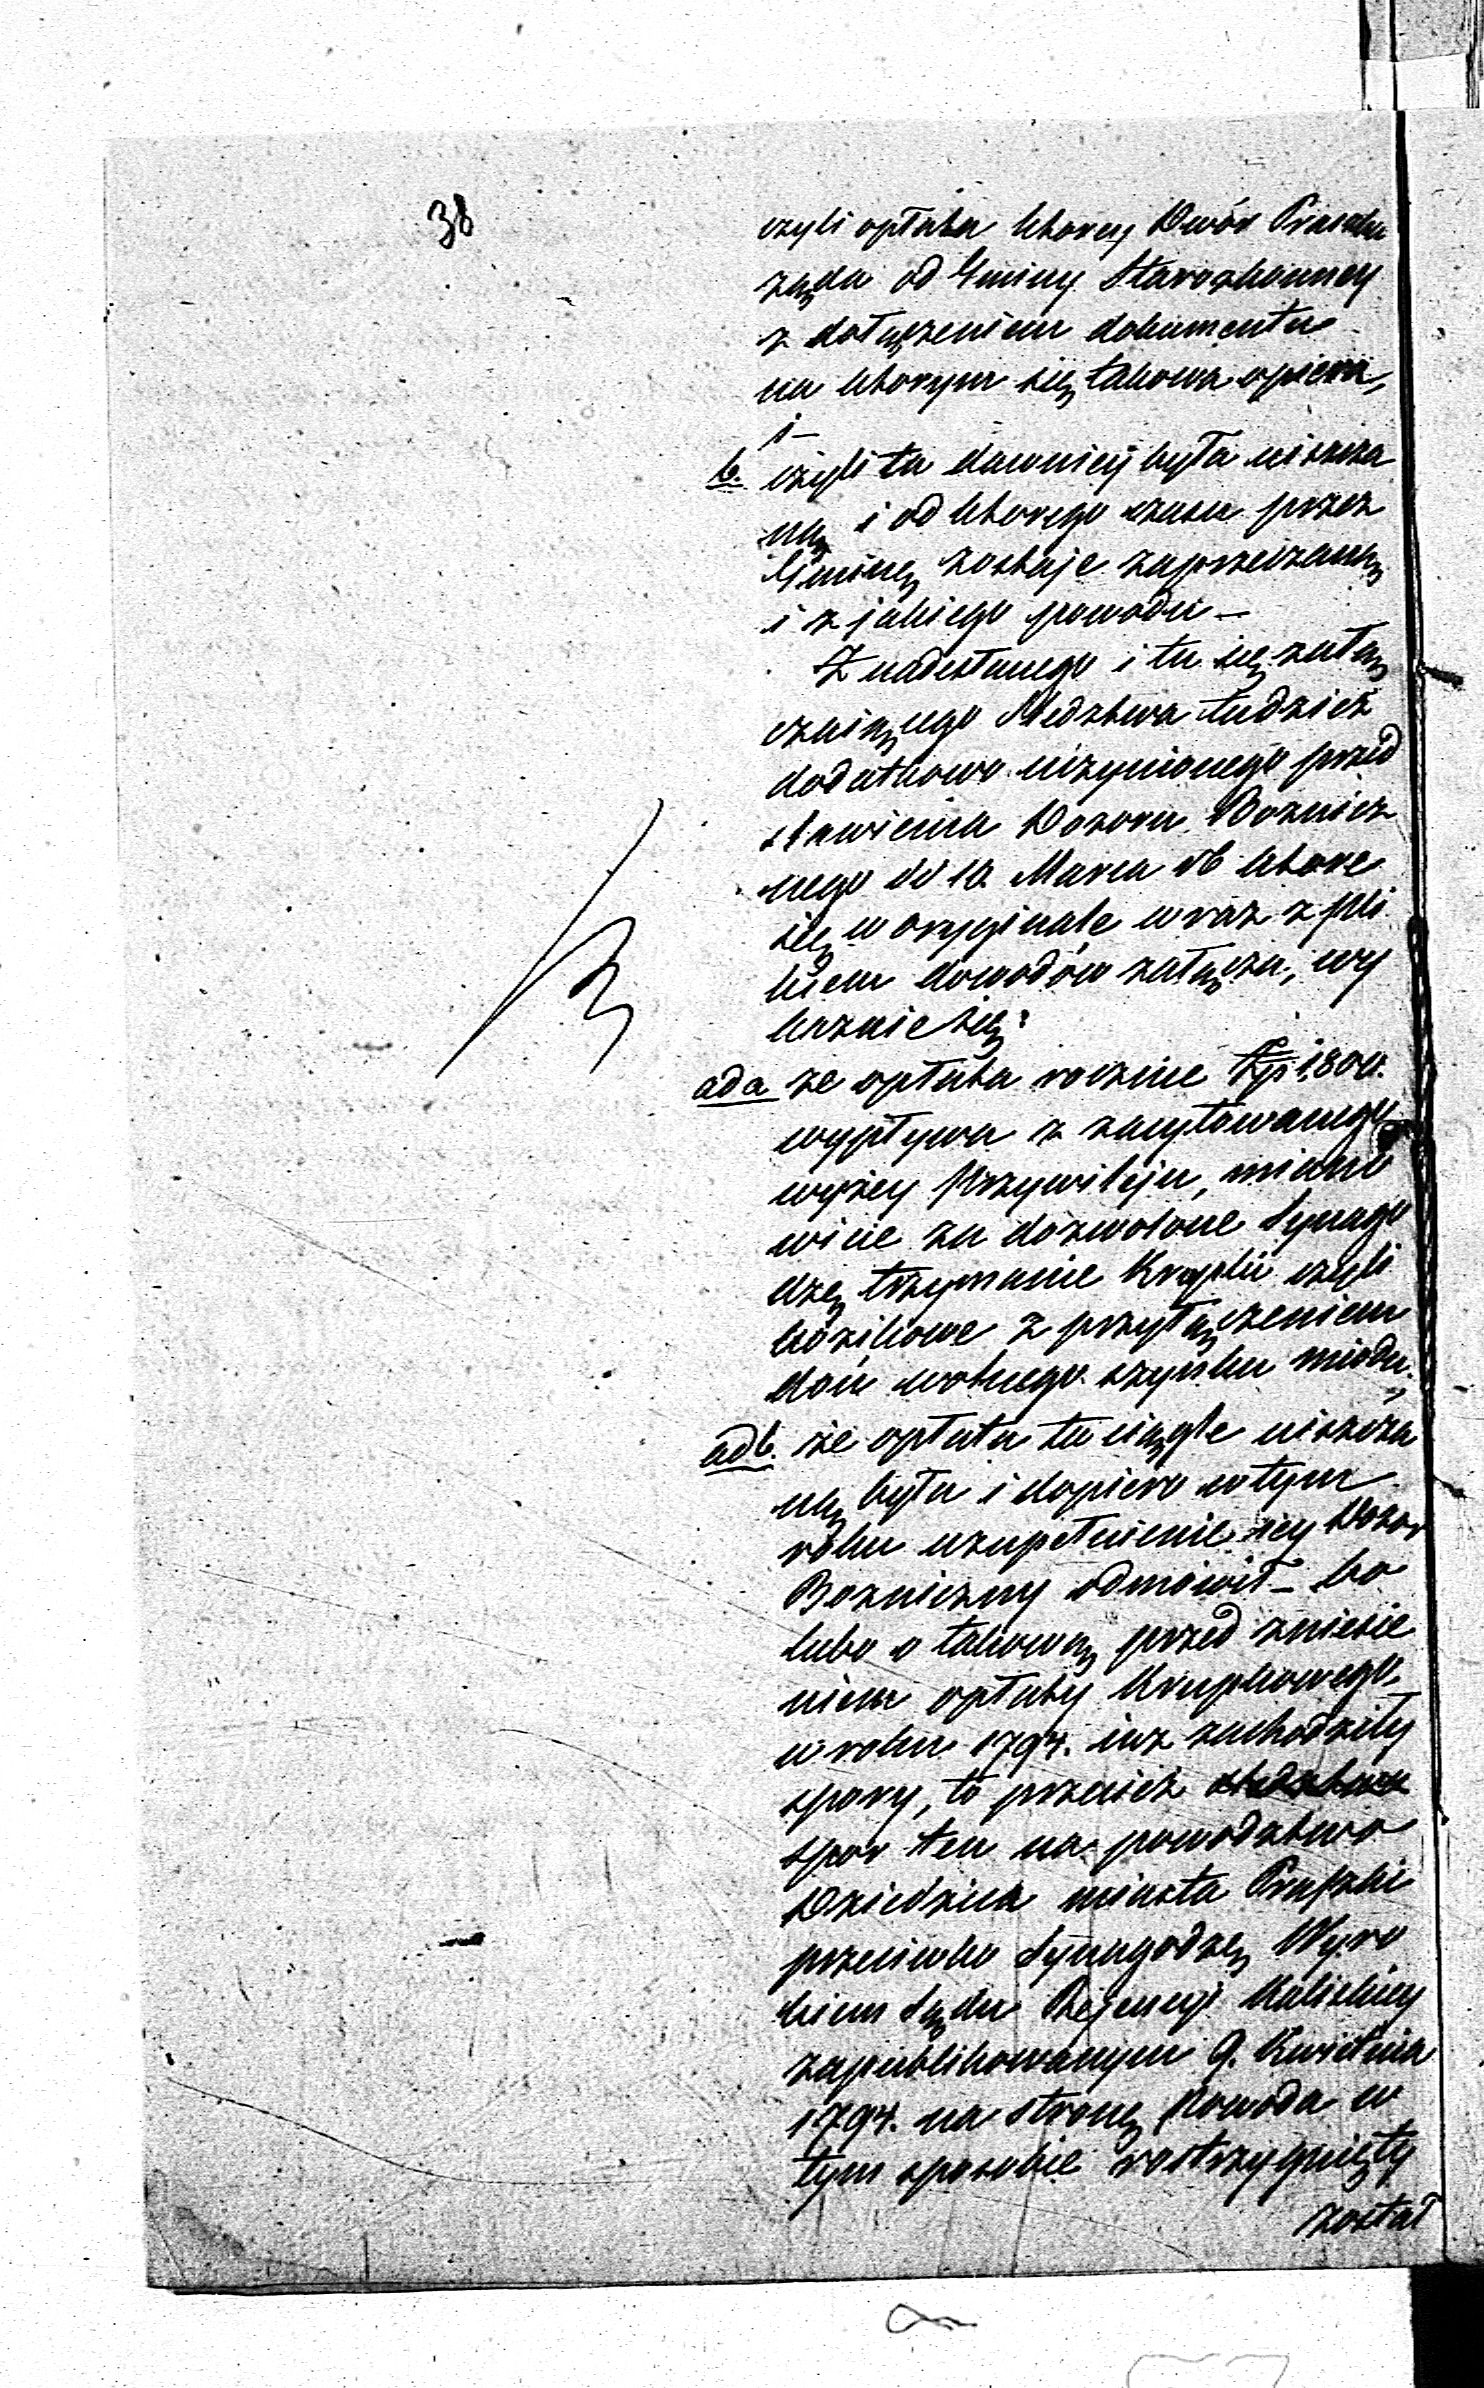 38
czyli opłata ktorey Dwór Praszka
żąda od Gminy Starozkonney
z dołączeniem dokumentu
na ktorym się takowa opiera,
i –
b. czyli ta dawniey była uiszcza
ną i od ktorego czasu przez
Gminę zostaje zaprzeczaną
i z jakiego powodu –
Z nadesłanego i tu się załą
czaiącego Sledztwa tudzież
dodatkowo uczynionego przed
stawienia Dozoru Boznicz
nego dd 10 Marca rb ktore
się w oryginale wraz z pli
kiem dowodów załącza, wy
kazuie się:
ad a że opłata rocznie fp 1,800.
wypływa z zacytowanego
wyżey Przywileju, miano
wicie za dozwolone Synago
dze trzymanie Krupki czyli
koszikowe z przyłączeniem
doń wolnego szynku miodu;
ad b. że opłata ta ciągle uiszcza
ną była i dopiero w tym
roku uzupełnienie iey Dozor
Bozniczny odmówił – bo
lubo o takową przed zniesie
niem opłaty Krupkowego
w roku 1794. iuz zachodziły
spory, to przecież
spor ten na powodztwo
Dziedzica miasta Praszki
przeciwko Synagodze Wyro
kiem Sądu Rejencyi Kaliskiey
zapublikowanym 9. Kwietnia
1794. na stronę Powoda w
tym sposobie rostrzygnięty
został